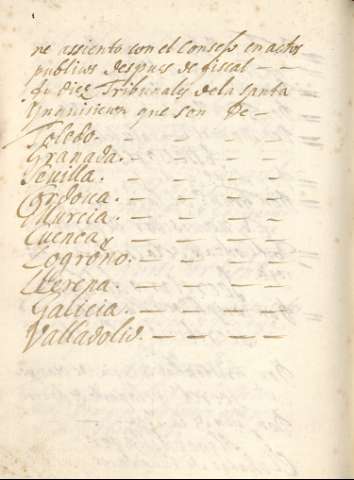 ne assiento con el Consejo en actos
publicos despues de fiscal — —
diez Tribunales dela santa
Ynquisicion que son De —
Toledo. — — — —
Granada. — — — —
Seuilla. — — — —
Cordoua. — — — —
Murcia. — — — —
Cuenca — — — —
Logroño. — — —
Llerena. — — — —
Galicia. — — — —
Valladolid. — — — —